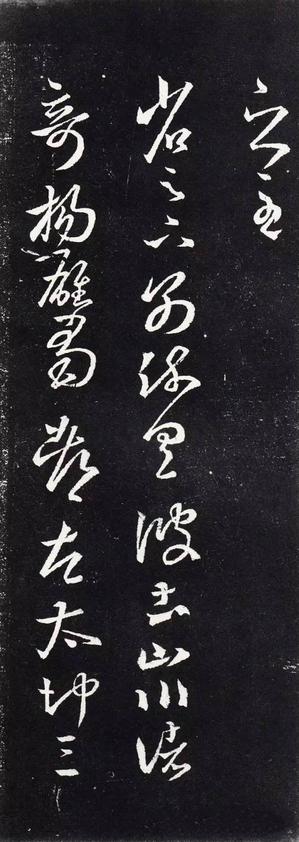 省足下別疏具彼土山川諸
奇楊雄蜀都左太沖三